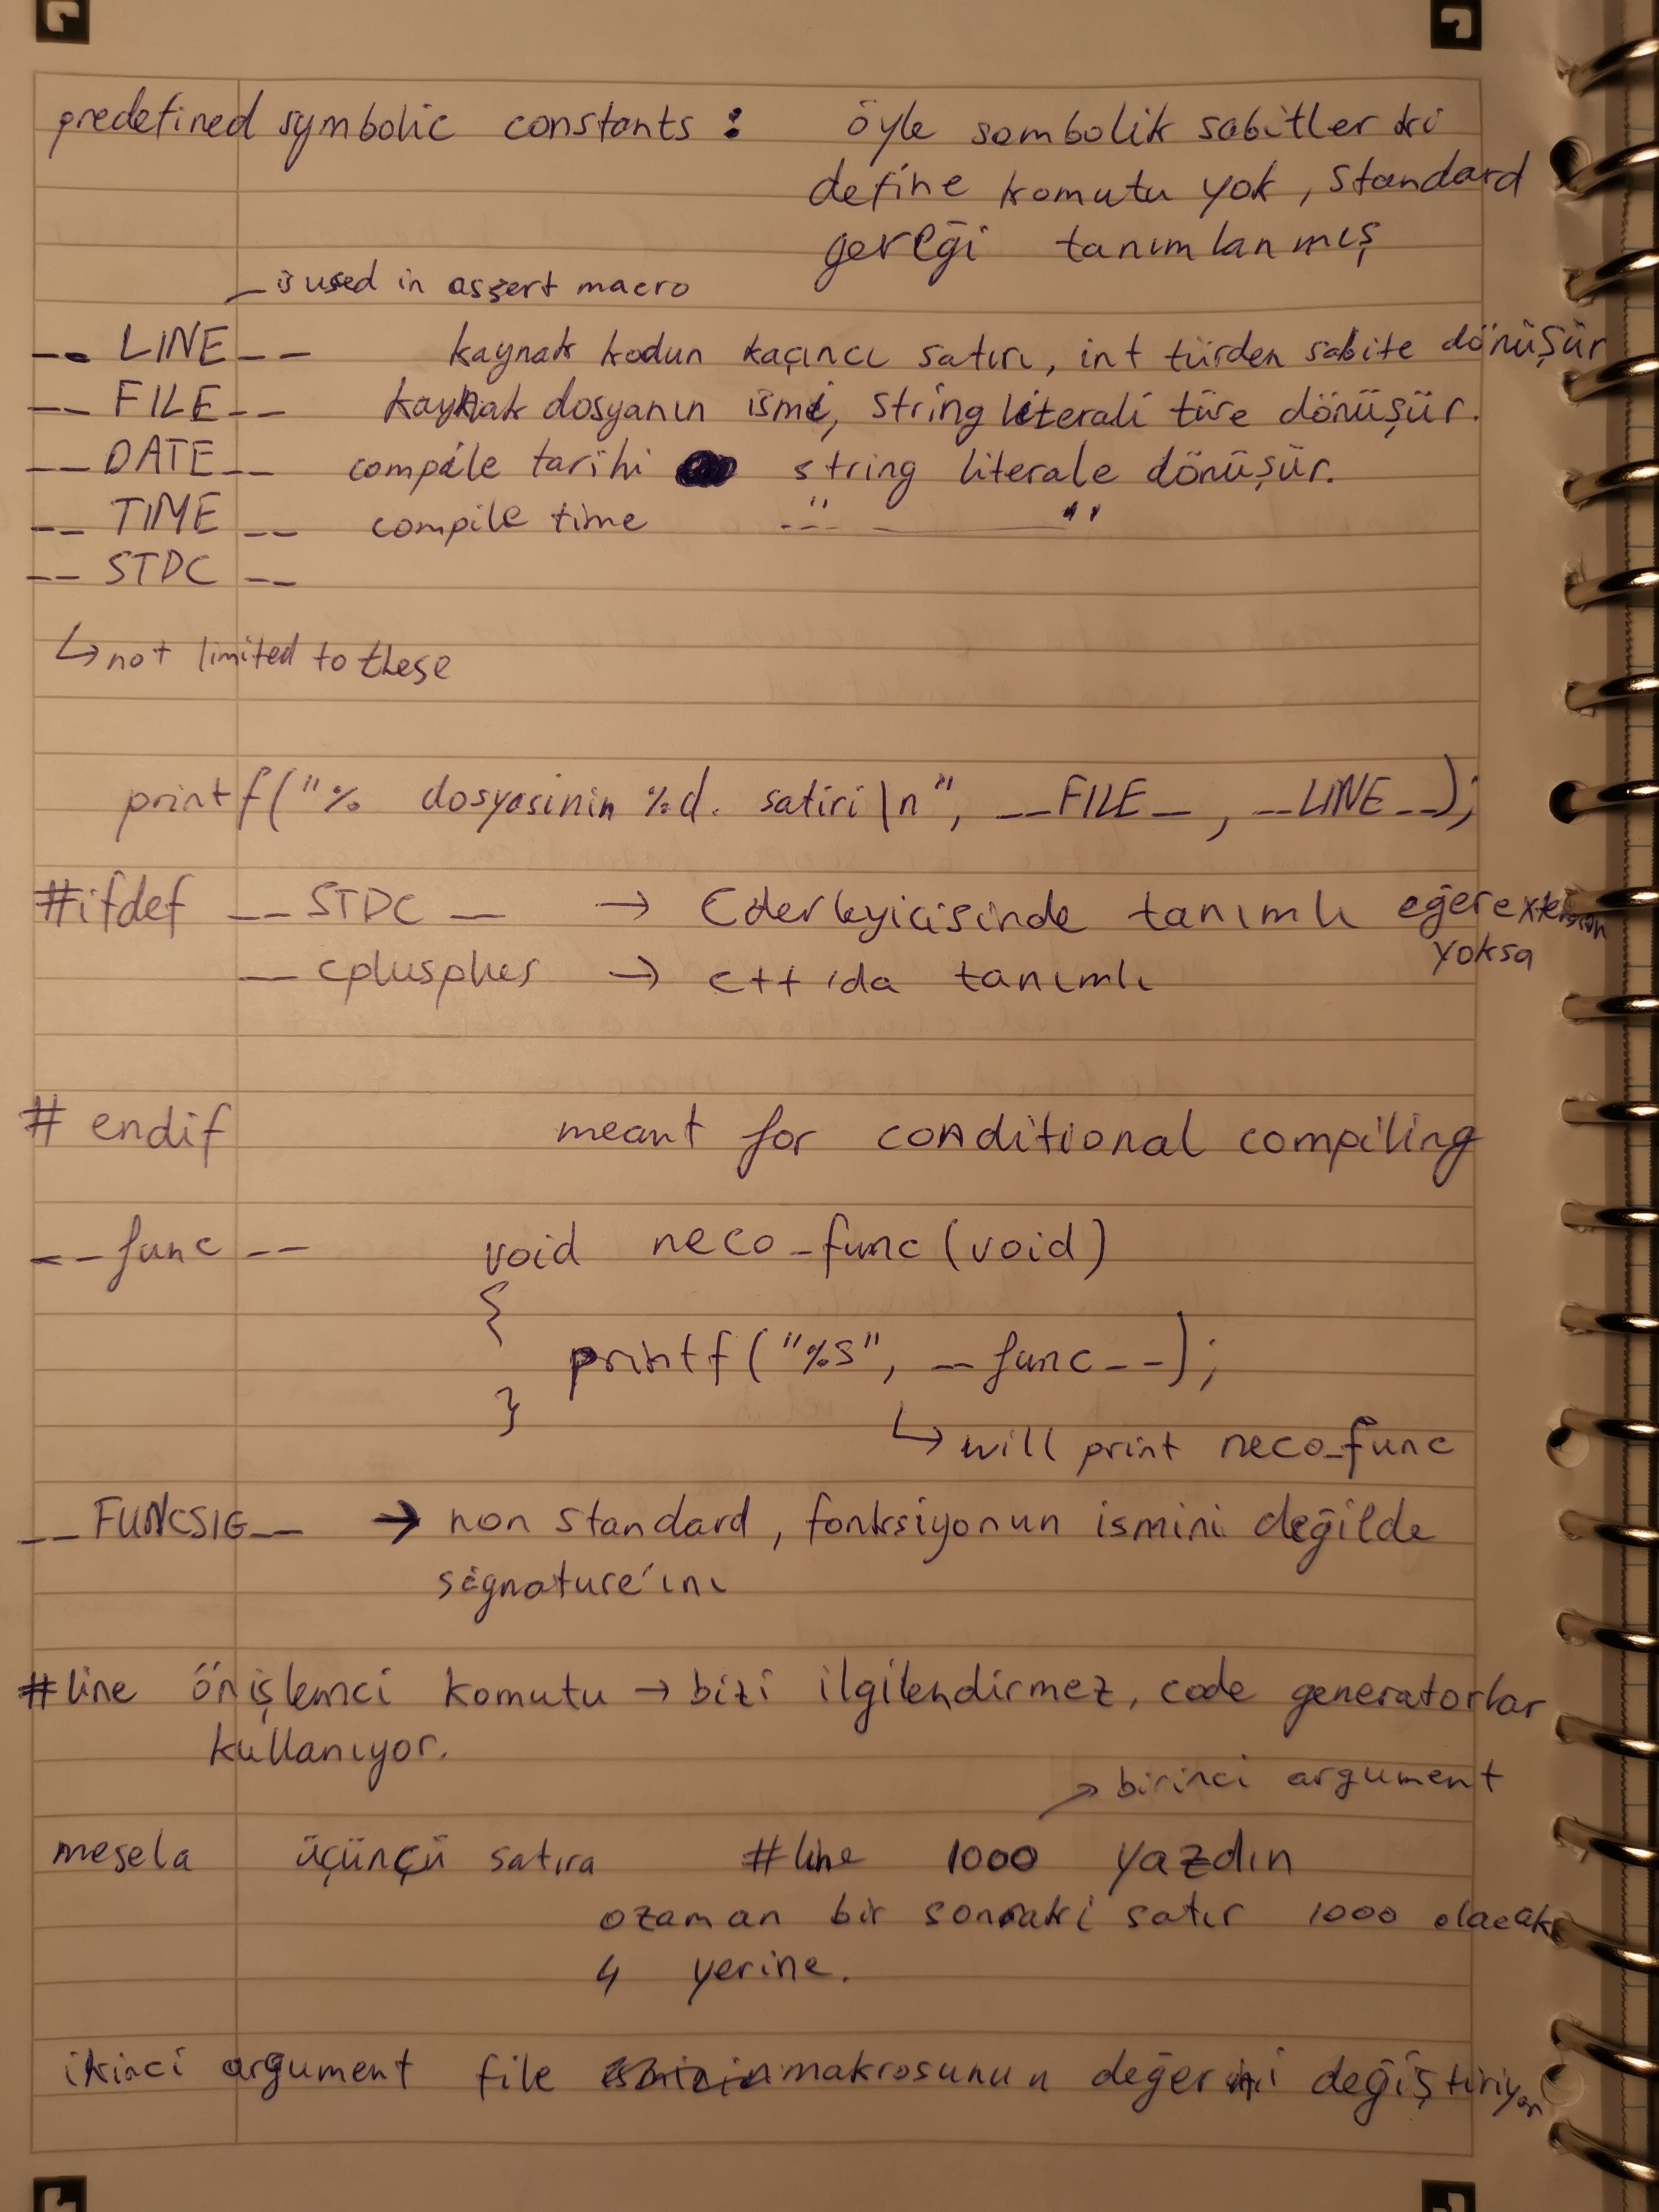 predefined symbolic constants : öyle sembolik sabitler ki
define komutu yok, standard
gereği tanımlanmış
is used in assert macro
__ LINE __ kaynak kodun kaçıncı satırı, int türden sabite dönüşür
__ FILE __ kaynak dosyanın ismi, string literali türe dönüşür.
__ DATE __ compile tarihi string literale dönüşür.
__ TIME __ compile time " "
__ STDC __
↳ not limited to these
printf("% dosyasinin %d. satiri \n", __FILE_, __LINE__);
#ifdef __STDC _ → C derleyicisinde tanımlı eğer extension
yoksa
_ cplusplus → c++'da tanımlı
# endif meant for conditional compiling
__func __ void neco_func(void)
{
printf("%s", _func__);
}
↳ will print neco_func
__FUNCSIG__ → non standard, fonksiyonun ismini değilde
signature'ını
#line önişlemci komutu → bizi ilgilendirmez, code generatorlar
kullanıyor.
↗ birinci argument
mesela üçüncü satıra #line 1000 yazdın
ozaman bir sonraki satır 1000 olacak
4 yerine.
ikinci argument file makrosunun değerini değiştiriyor